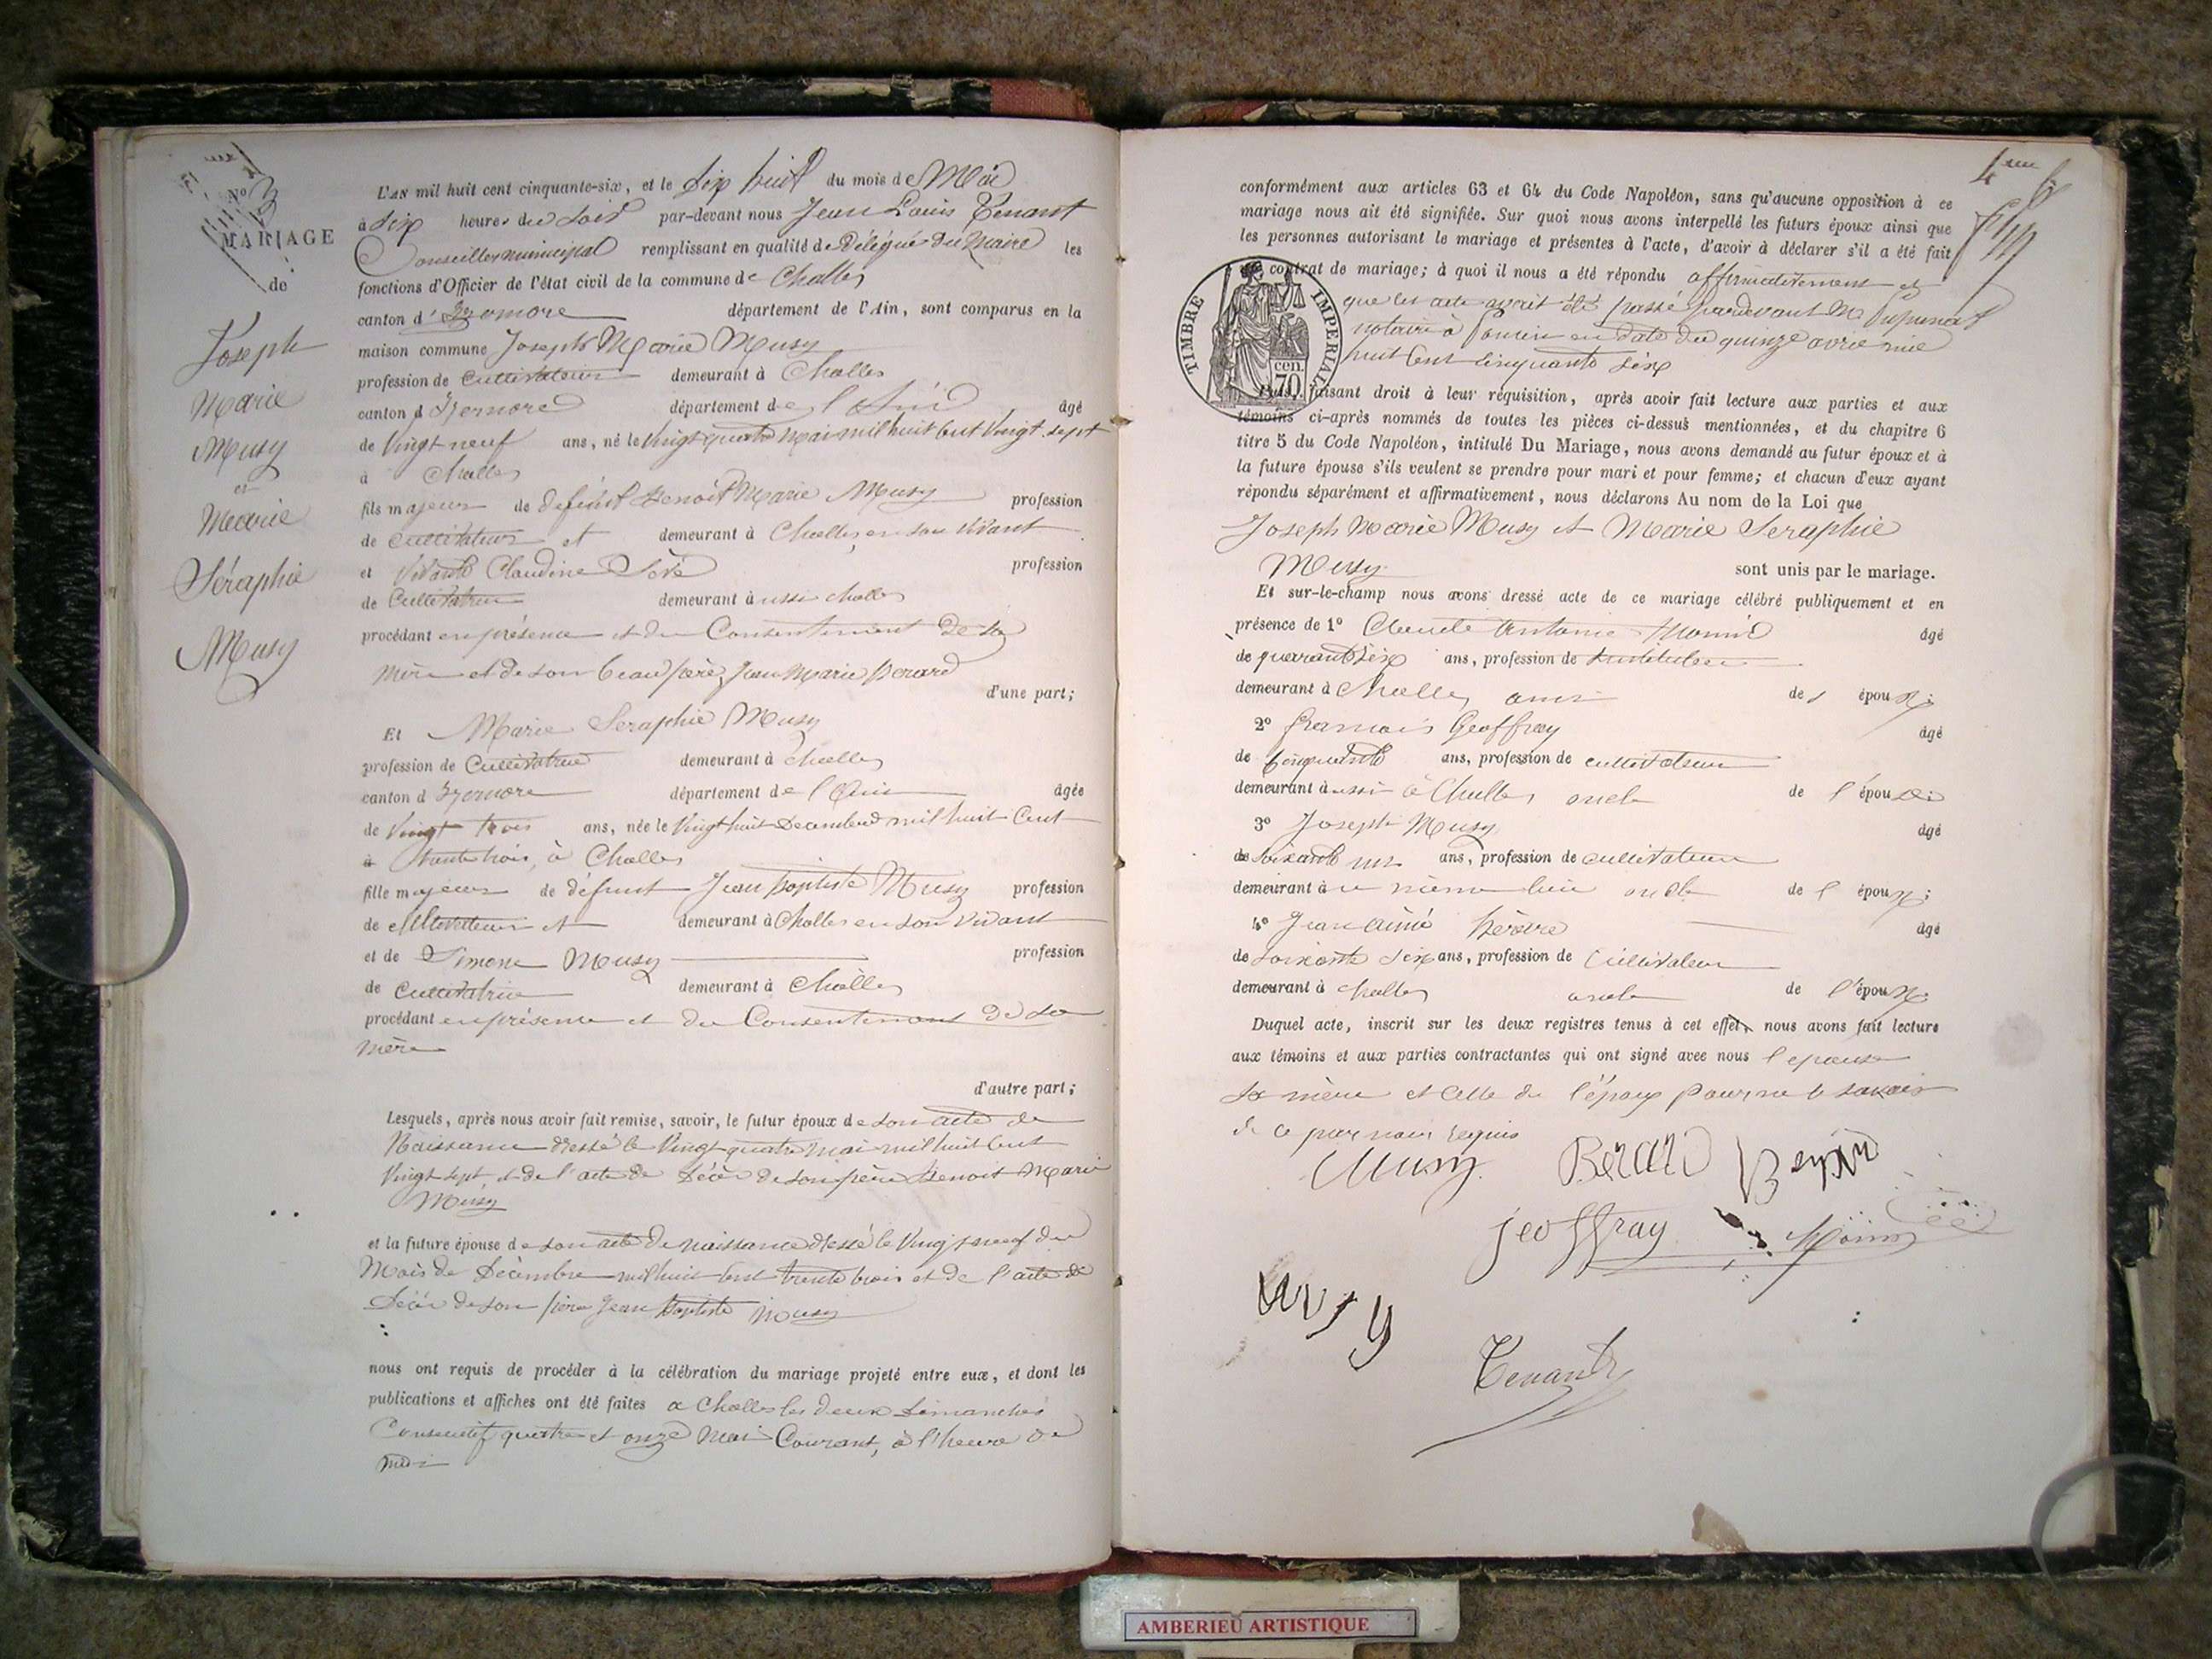 No 3
MARIAGE
de
Joseph
Marie
Musy
et
Marie
Séraphie
Musy
L'AN mil huit cent cinquante-six, et le dix huit du mois de Mai
à six heures du soir par-devant nous Jean Louis Tenant
Conseiller municipal remplissant en qualité de Délégué du Maire les
fonctions d'Officier de l'état civil de la commune de Challes
canton d'Izernore département de l'Ain, sont comparus en la
maison commune Joseph Marie Musy
profession de cultivateur demeurant à Challes
canton d Izernore département de l'Ain âgé
de Vingt neuf ans, né le Vingt quatre Mai mil huit cent Vingt sept
à Challes
fils majeur de defunt Benoît Marie Musy profession
de cultivateur et demeurant à Challes en son vivant
et vivante Claudine profession
de Cultivatrice demeurant à ussi challes
procédant en présence et du Consentement de sa
mère et de son beau père, Jean Marie Berard
d'une part;
Et Marie Seraphie Musy
profession de Cultivatrice demeurant à Challes
canton d Izernore département de l'Ain âgée
de Vingt trois ans, née le Vingt huit Decembre mil huit Cent
à trente trois, à Challes
fille majeure de défunt Jean baptiste Musy profession
de cultivateur et demeurant à Challes en son vivant
et de Simone Musy profession
de Cultivatrice demeurant à Challes
procédant en présence et du Consentement de sa
mère
d'autre part;
Lesquels, après nous avoir fait remise, savoir, le futur époux de son acte de
Naissance dressé le Vingt quatre mai mil huit cent
Vingt sept, et de l'acte de Décès de son père Benoit Marie
Musy
et la future épouse de son acte de naissance dressé le Vingt neuf du
Mois de Décembre mil huit cent trente trois et de l'acte de
Décès de son père Jean Baptiste Musy
nous ont requis de procéder à la célébration du mariage projeté entre eux, et dont les
publications et affiches ont été faites a Challes les deux dimanches
Consecutif quatre et onze Mai Courant, à l'heure de
midi
4eme
conformément aux articles 63 et 64 du Code Napoléon, sans qu'aucune opposition à ce
mariage nous ait été signifiée. Sur quoi nous avons interpellé les futurs époux ainsi que
les personnes autorisant le mariage et présentes à l'acte, d'avoir à déclarer s'il a été fait
contrat de mariage; à quoi il nous a été répondu affirmativement et
que cet acte avait été passé pardevant Me
notaire à Poncin en date du quinze avril mil
huit cent cinquante six
TIMBRE IMPERIAL
70 cen.
Puis, faisant droit à leur réquisition, après avoir fait lecture aux parties et aux
témoins ci-après nommés de toutes les pièces ci-dessus mentionnées, et du chapitre 6
titre 5 du Code Napoléon, intitulé Du Mariage, nous avons demandé au futur époux et à
la future épouse s'ils veulent se prendre pour mari et pour femme; et chacun d'eux ayant
répondu séparément et affirmativement, nous déclarons Au nom de la Loi que
Joseph Marie Musy et Marie Seraphie
Musy sont unis par le mariage.
Et sur-le-champ nous avons dressé acte de ce mariage célébré publiquement et en
présence de 1° Claude Antoine âgé
de quarante six ans, profession de Instituteur
demeurant à Challes ami des époux;
2° francois Geoffray âgé
de Cinquante ans, profession de cultivateur
demeurant aussi à Challes oncle de l'épouse;
3° Joseph Musy âgé
de soixante un ans, profession de cultivateur
demeurant à u même lieu oncle de l époux;
4° Jean aimé âgé
de soixante six ans, profession de Cultivateur
demeurant à challes oncle de l'époux
Duquel acte, inscrit sur les deux registres tenus à cet effet, nous avons fait lecture
aux témoins et aux parties contractantes qui ont signé avec nous l'epouse
sa mère et celle de l'époux pour ne le savoir
de ce par nous requis
Musy Berard
jeoffray
musy
Tenand
AMBERIEU ARTISTIQUE